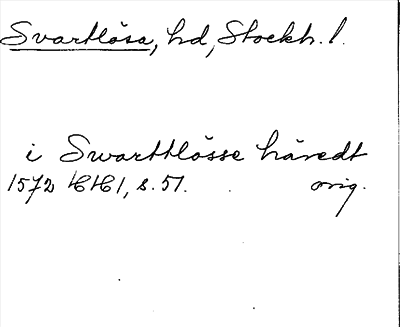 Svartlösa, hd, Stockh. l.
i Swarttlösse häredt
1572 HH1, s. 51. orig.